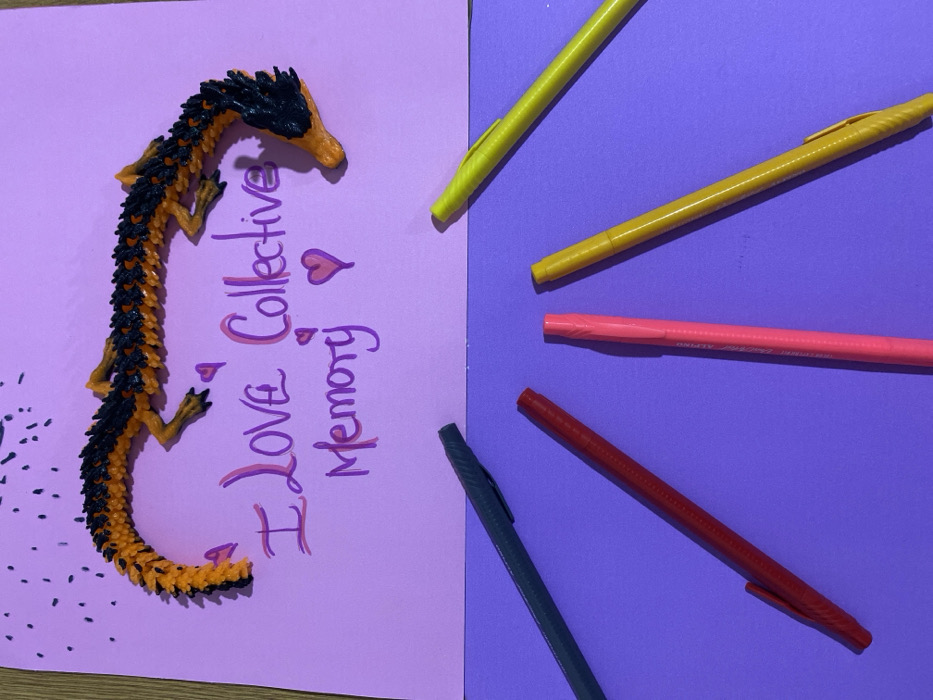 I LOVE Collective
Memory